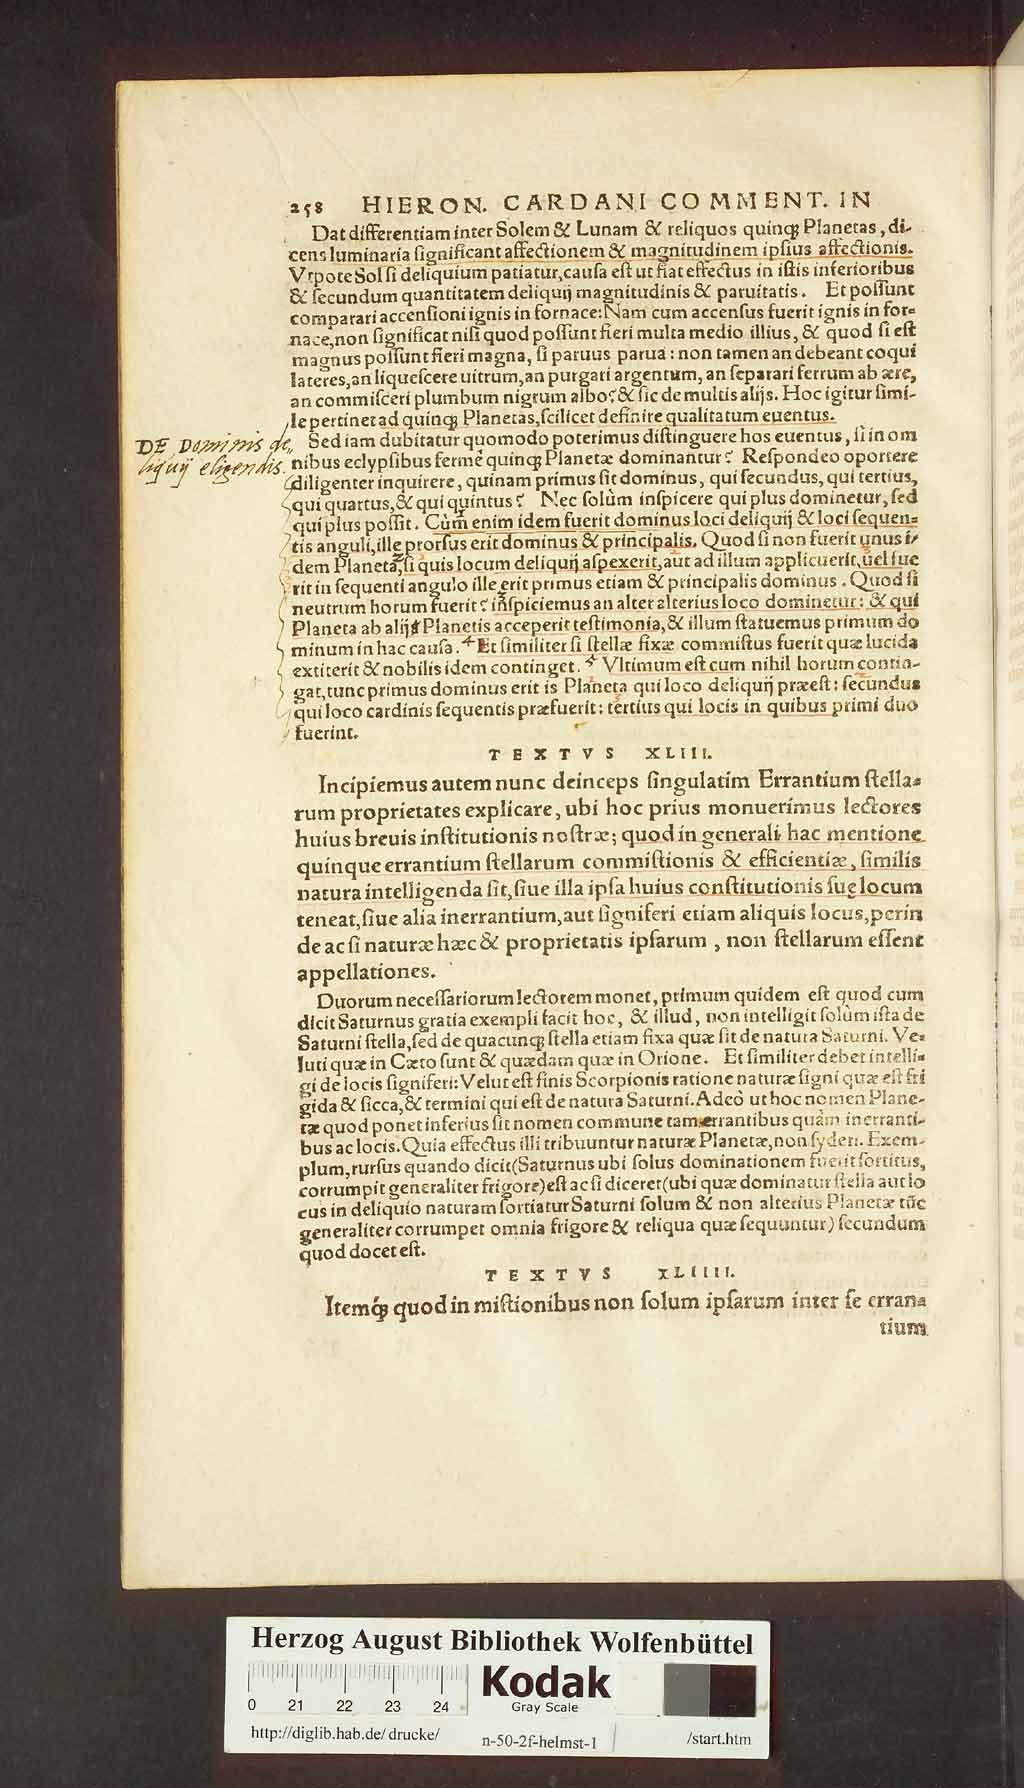 258 HIERON. CARDANI COMMENT. IN
Dat differentiam inter Solem & Lunam & reliquos quinqꝫ Planetas, di-
cens luminaria ſignificant affectionem & magnitudinem ipſius affectionis.
Vtpote Sol ſi deliquium patiatur, cauſa eſt ut fiat effectus in iſtis inferioribus
& ſecundum quantitatem deliquij magnitudinis & paruitatis. Et poſſunt
comparari accenſioni ignis in fornace: Nam cum accenſus fuerit ignis in for=
nace, non ſignificat niſi quod poſſunt fieri multa medio illius, & quod ſi eſt
magnus poſſunt fieri magna, ſi paruus parua: non tamen an debeant coqui
lateres, an liqueſcere uitrum, an purgati argentum, an ſeparari ferrum ab ære,
an commiſceri plumbum nigrum albo? & ſic de multis alijs. Hoc igitur ſimi-
le pertinet ad quinqꝫ Planetas, ſcilicet definire qualitatum euentus.
DE Dominis de„
liquij eligendis.
Sed iam dubitatur quomodo poterimus diſtinguere hos euentus, ſi in om
nibus eclypſibus fermè quinqꝫ Planetæ dominantur? Reſpondeo oportere
diligenter inquirere, quinam primus ſit dominus, qui ſecundus, qui tertius,
qui quartus, & qui quintus? Nec ſolùm inſpicere qui plus dominetur, ſed
qui plus poſſit. Cùm enim idem fuerit dominus loci deliquij & loci ſequen=
tis anguli, ille prorſus erit dominus & principalis. Quod ſi non fuerit unus i-
dem Planeta, ſi quis locum deliquij aſpexerit, aut ad illum applicuerit, uel fue
rit in ſequenti angulo ille erit primus etiam & principalis dominus. Quod ſi
neutrum horum fuerit? inſpiciemus an alter alterius loco dominetur: & qui
Planeta ab alijs Planetis acceperit teſtimonia, & illum ſtatuemus primum do
minum in hac cauſa. Et ſimiliter ſi ſtellæ fixæ commiſtus fuerit quæ lucida
extiterit & nobilis idem continget. Vltimum eſt cum nihil horum contin-
gat, tunc primus dominus erit is Planeta qui loco deliquij præeſt: ſecundus
qui loco cardinis ſequentis præfuerit: tertius qui locis in quibus primi duo
fuerint.
TEXTVS XLIII.
Incipiemus autem nunc deinceps ſingulatim Errantium ſtella=
rum proprietates explicare, ubi hoc prius monuerimus lectores
huius breuis inſtitutionis noſtræ; quod in generali hac mentione
quinque errantium ſtellarum commiſtionis & efficientiæ, ſimilis
natura intelligenda ſit, ſiue illa ipſa huius conſtitutionis ſuę locum
teneat, ſiue alia inerrantium, aut ſigniferi etiam aliquis locus, perin
de ac ſi naturæ hæc & proprietatis ipſarum, non ſtellarum eſſent
appellationes.
Duorum neceſſariorum lectorem monet, primum quidem eſt quod cum
dicit Saturnus gratia exempli facit hoc, & illud, non intelligit ſolùm iſta de
Saturni ſtella, ſed de quacunqꝫ ſtella etiam fixa quæ ſit de natura Saturni. Ve=
luti quæ in Cæto ſunt & quædam quæ in Orione. Et ſimiliter debet intelli=
gi de locis ſigniferi: Velut eſt finis Scorpionis ratione naturæ ſigni quæ eſt fri
gida & ſicca, & termini qui eſt de natura Saturni. Adeò ut hoc nomen Plane-
tæ quod ponet inferius ſit nomen commune tam errantibus quàm inerranti-
bus ac locis. Quia effectus illi tribuuntur naturæ Planetæ, non ſyderi. Exem-
plum, rurſus quando dicit (Saturnus ubi ſolus dominationem fuerit ſortitus,
corrumpit generaliter frigore) eſt ac ſi diceret (ubi quæ dominatur ſtella aut lo
cus in deliquio naturam ſortiatur Saturni ſolum & non alterius Planetæ tūc
generaliter corrumpet omnia frigore & reliqua quæ ſequuntur) ſecundum
quod docet eſt.
TEXTVS XLIIII.
Itemqꝫ quod in miſtionibus non ſolum ipſarum inter ſe erran=
tium
Herzog August Bibliothek Wolfenbüttel
Kodak
Gray Scale
0 21 22 23 24
http://diglib.hab.de/drucke/ n-50-2f-helmst-1 /start.htm